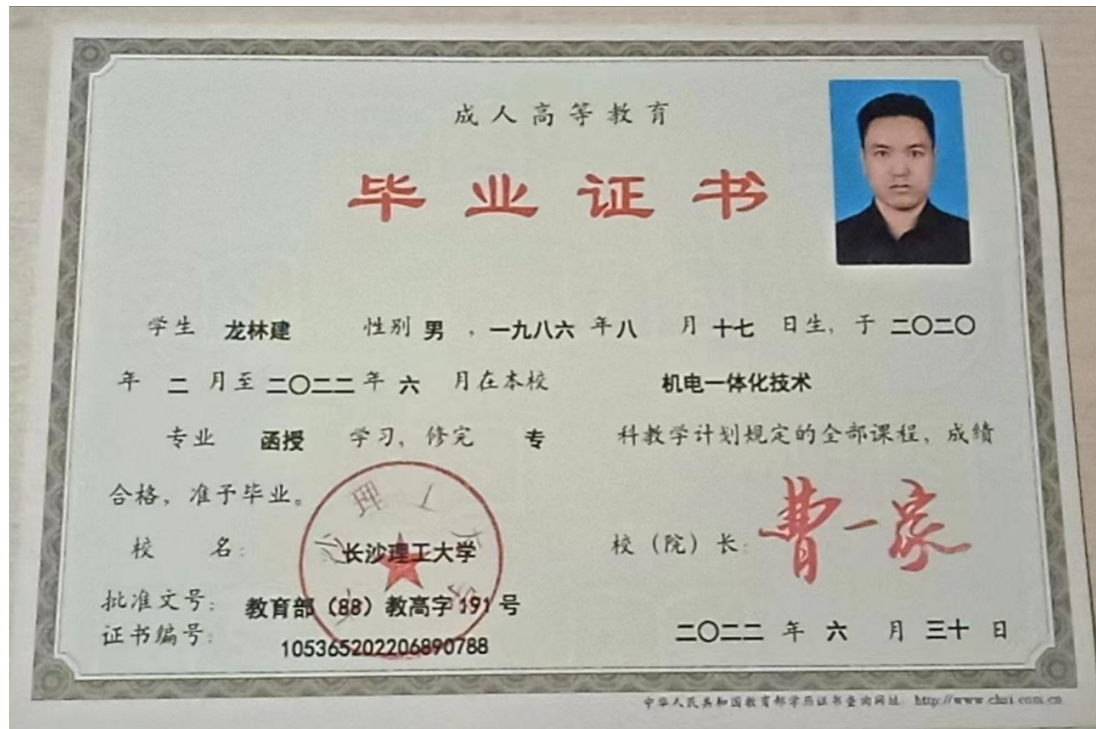 成人高等教育
毕业证书
学生 龙林建 性别 男 ，一九八六 年 八 月 十七 日生，于 二〇二〇
年 二 月至 二〇二二 年 六 月在本校 机电一体化技术
专业 函授 学习，修完 专 科教学计划规定的全部课程，成绩
合格，准予毕业。
校 名： 长沙理工大学 校（院）长： 曹一家
批准文号： 教育部（88）教高字 191 号
证书编号： 105365202206890788 二〇二二 年 六 月 三十 日
中华人民共和国教育部学历证书查询网址：http://www.chsi.com.cn